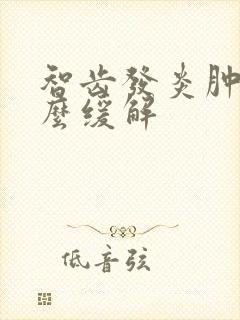 智齿發炎肿
麼缓解
低音弦